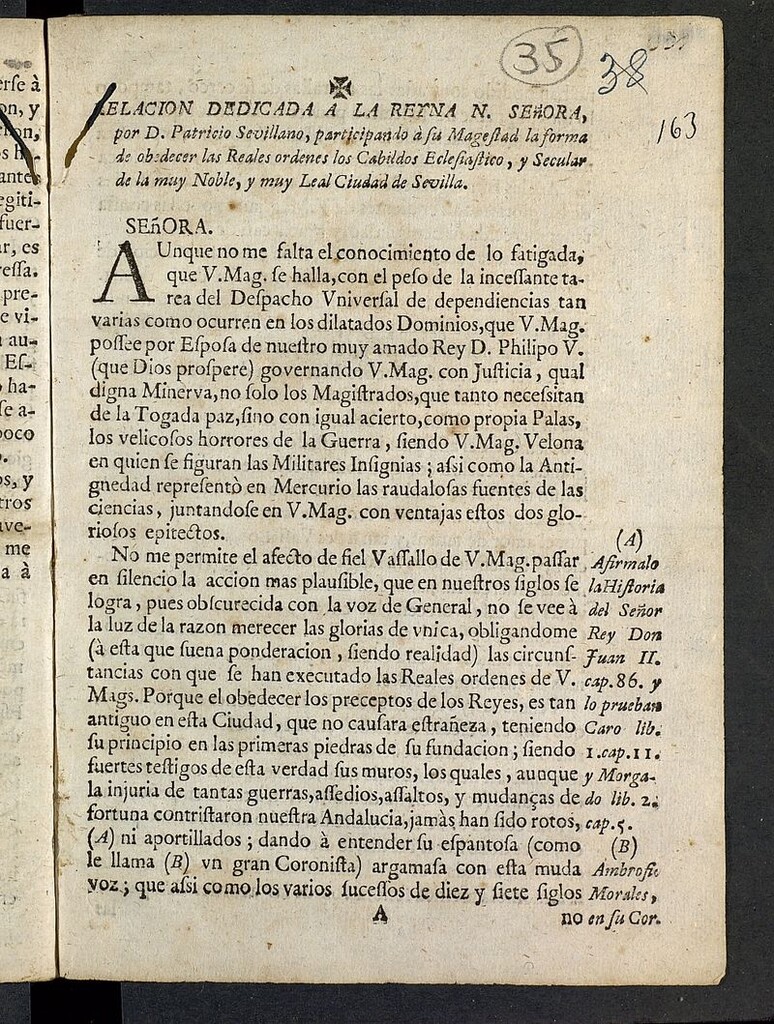 erse à
on, y
antes
egiti-
fuer-
ar, es
essa.
pre-
e vi-
au-
Es-
ha-
se a-
poco
os, y
tros
uve-
me
a à
35
38
163
RELACION DEDICADA A LA REYNA N. SEñORA,
por D. Patricio Sevillano, participando à ſu Mageſtad la forma
de obedecer las Reales ordenes los Cabildos Ecleſiaſtico, y Secular
de la muy Noble, y muy Leal Ciudad de Sevilla.
SEñORA.
AUnque no me falta el conocimiento de lo fatigada,
que V.Mag. ſe halla,con el peſo de la inceſſante ta-
rea del Deſpacho Vniverſal de dependiencias tan
varias como ocurren en los dilatados Dominios,que V.Mag.
poſſee por Eſpoſa de nueſtro muy amado Rey D. Philipo V.
(que Dios proſpere) governando V.Mag. con Juſticia, qual
digna Minerva,no ſolo los Magiſtrados,que tanto neceſsitan
de la Togada paz,ſino con igual acierto,como propia Palas,
los velicoſos horrores de la Guerra, ſiendo V.Mag. Velona
en quien ſe figuran las Militares Inſignias; aſsi como la Anti-
gnedad repreſentò en Mercurio las raudaloſas fuentes de las
ciencias, juntandoſe en V.Mag. con ventajas eſtos dos glo-
rioſos epitectos.
No me permite el afecto de fiel Vaſſallo de V.Mag.paſſar
en ſilencio la accion mas plauſible, que en nueſtros ſiglos ſe
logra, pues obſcurecida con la voz de General, no ſe vee à
la luz de la razon merecer las glorias de vnica, obligandome
(à eſta que ſuena ponderacion, ſiendo realidad) las circunſ-
tancias con que ſe han executado las Reales ordenes de V.
Mags. Porque el obedecer los preceptos de los Reyes, es tan
antiguo en eſta Ciudad, que no cauſara eſtrañeza, teniendo
ſu principio en las primeras piedras de ſu fundacion; ſiendo
fuertes teſtigos de eſta verdad ſus muros, los quales, aunque
la injuria de tantas guerras,aſſedios,aſſaltos, y mudanças de
fortuna contriſtaron nueſtra Andalucia,jamàs han ſido rotos,
(A) ni aportillados; dando à entender ſu eſpantoſa (como
le llama (B) vn gran Coroniſta) argamaſa con eſta muda
voz; que aſsi como los varios ſuceſſos de diez y ſiete ſiglos
A
no
(A)
Afirmalo
la Hiſtoria
del Señor
Rey Don
Juan II.
cap.86. y
lo prueban
Caro lib.
1.cap.11.
y Morga-
do lib. 2.
cap.5.
(B)
Ambroſio
Morales,
en ſu Cor.